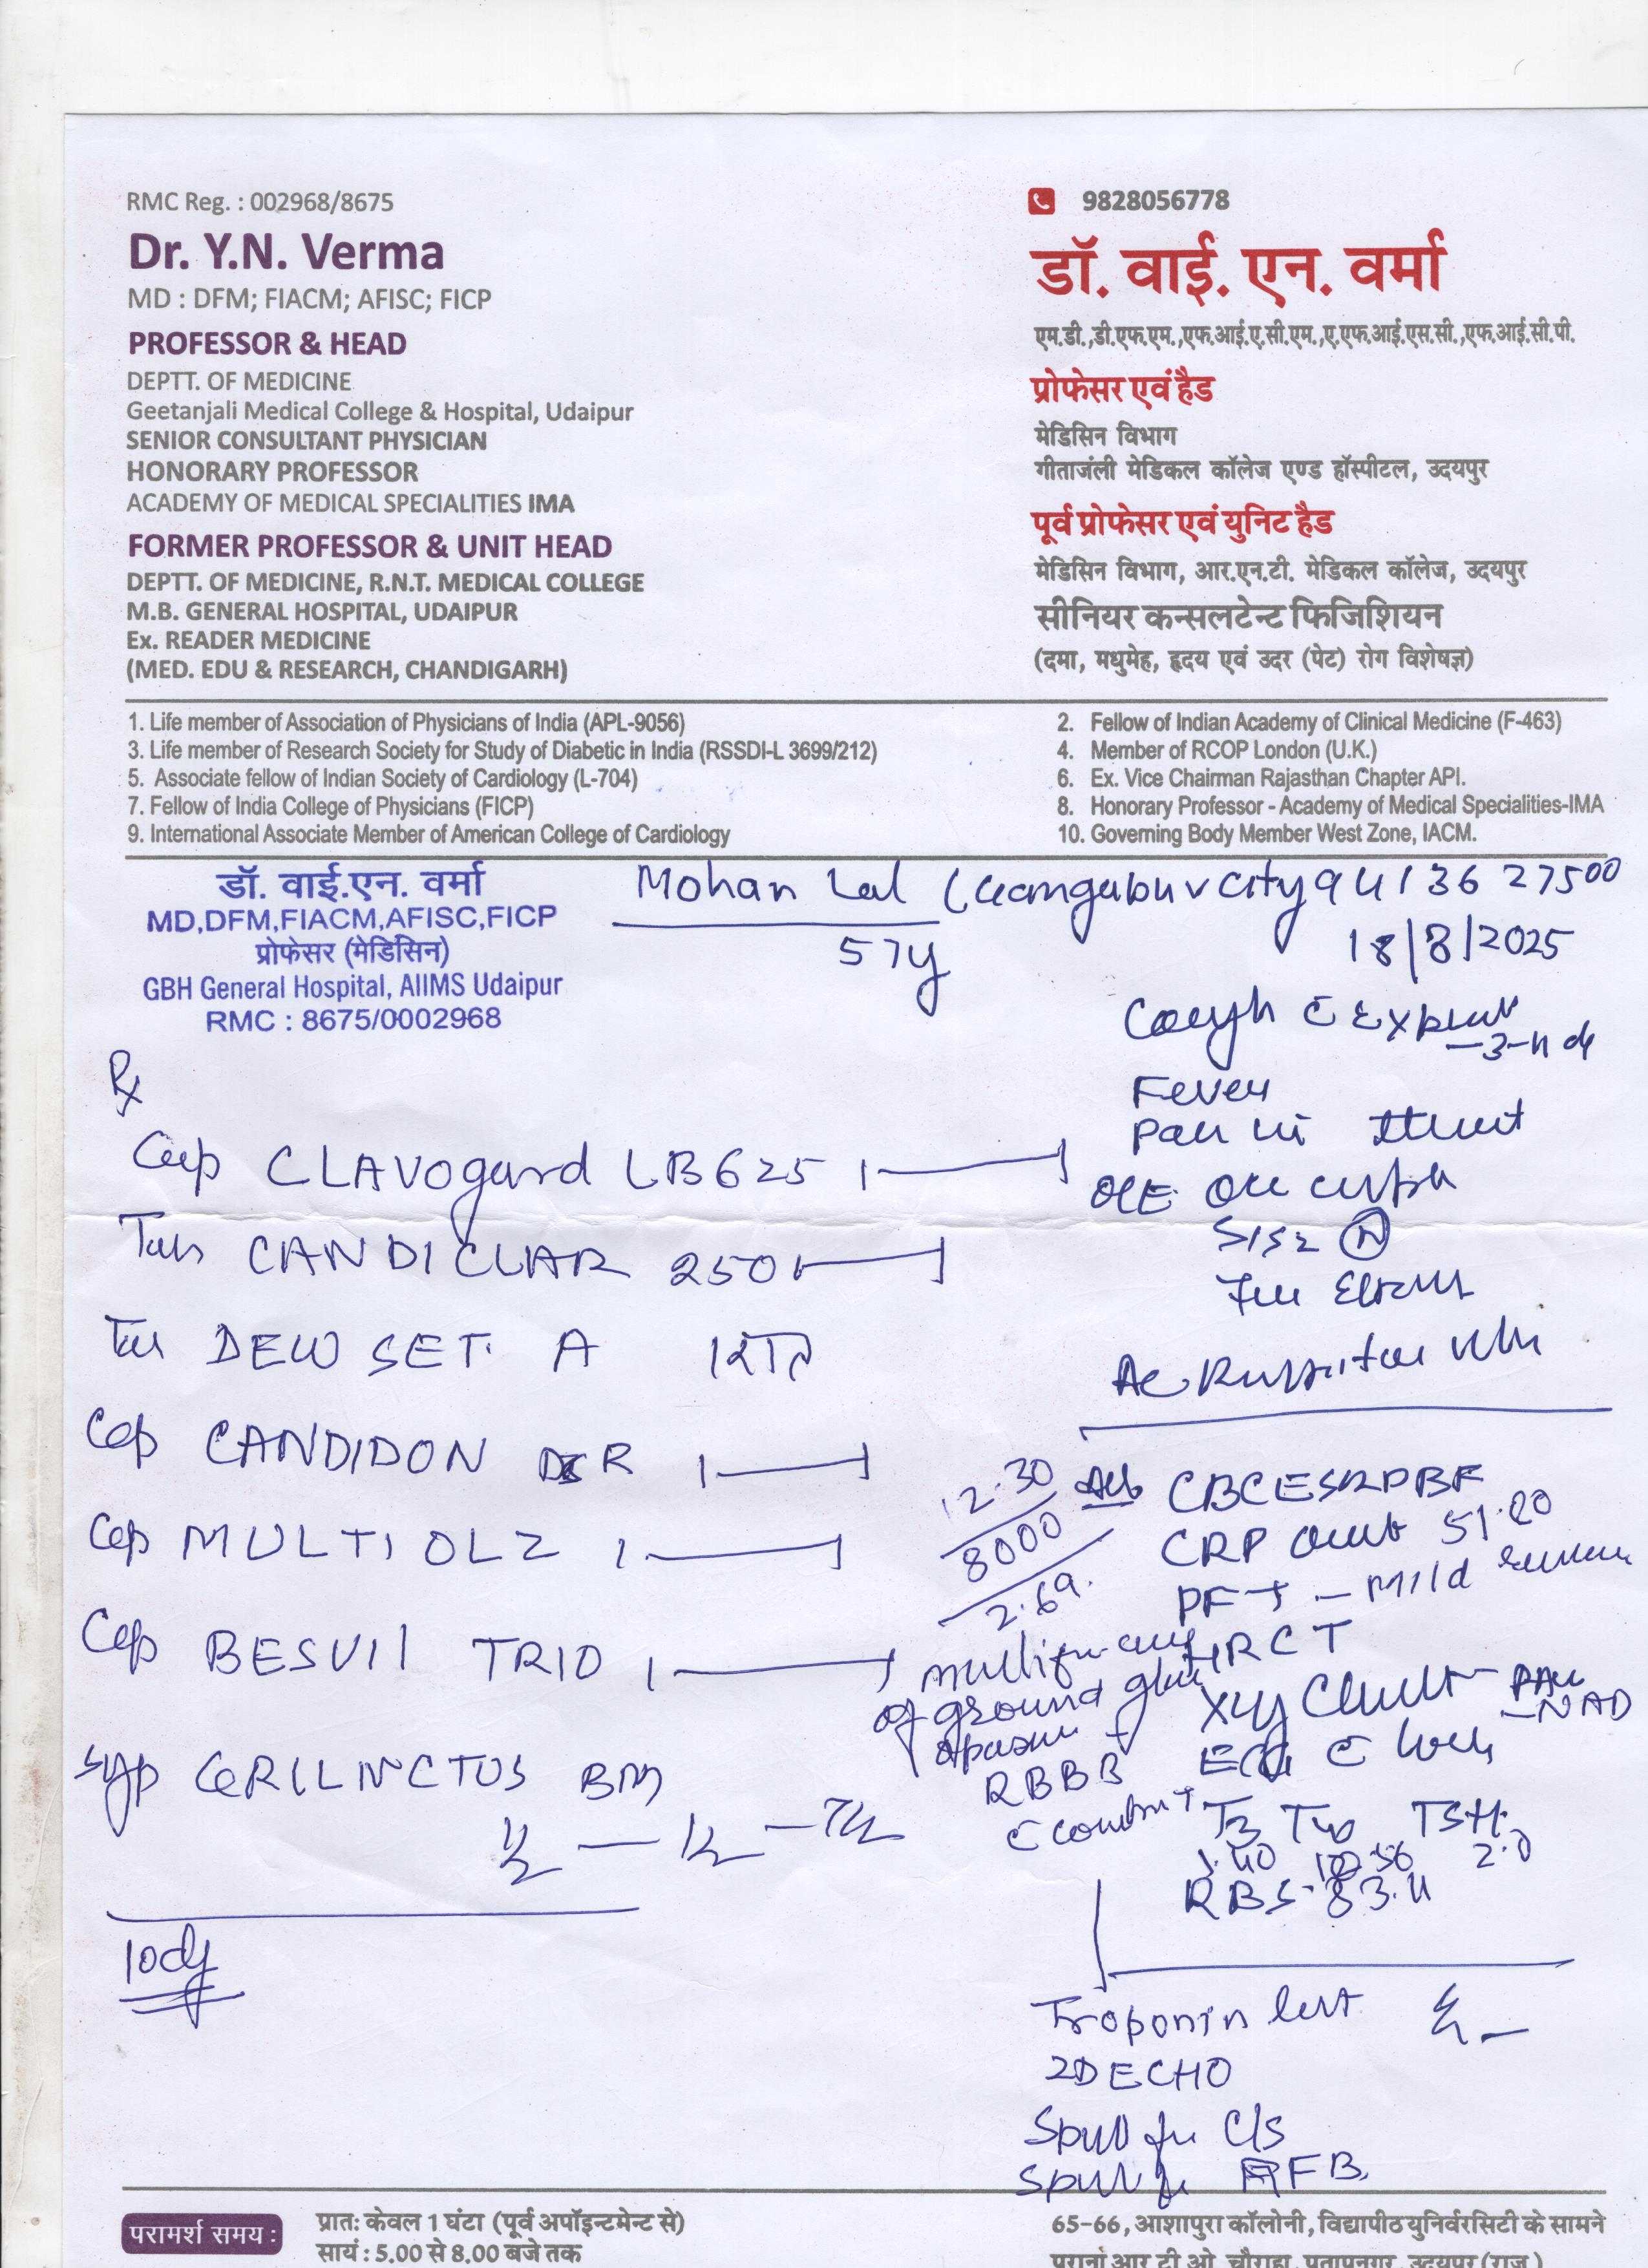 RMC Reg. : 002968/8675
Dr. Y.N. Verma
MD : DFM; FIACM; AFISC; FICP
PROFESSOR & HEAD
DEPTT. OF MEDICINE
Geetanjali Medical College & Hospital, Udaipur
SENIOR CONSULTANT PHYSICIAN
HONORARY PROFESSOR
ACADEMY OF MEDICAL SPECIALITIES IMA
FORMER PROFESSOR & UNIT HEAD
DEPTT. OF MEDICINE, R.N.T. MEDICAL COLLEGE
M.B. GENERAL HOSPITAL, UDAIPUR
Ex. READER MEDICINE
(MED. EDU & RESEARCH, CHANDIGARH)
9828056778
डॉ. वाई. एन. वर्मा
एम.डी.,डी.एफ.एम.,एफ.आई.ए.सी.एम.,ए.एफ.आई.एस.सी.,एफ.आई.सी.पी.
प्रोफेसर एवं हैड
मेडिसिन विभाग
गीताजंली मेडिकल कॉलेज एण्ड हॉस्पीटल, उदयपुर
पूर्व प्रोफेसर एवं युनिट हैड
मेडिसिन विभाग, आर.एन.टी. मेडिकल कॉलेज, उदयपुर
सीनियर कन्सलटेन्ट फिजिशियन
(दमा, मधुमेह, हृदय एवं उदर (पेट) रोग विशेषज्ञ)
1. Life member of Association of Physicians of India (APL-9056)
2. Fellow of Indian Academy of Clinical Medicine (F-463)
3. Life member of Research Society for Study of Diabetic in India (RSSDI-L 3699/212)
4. Member of RCOP London (U.K.)
5. Associate fellow of Indian Society of Cardiology (L-704)
6. Ex. Vice Chairman Rajasthan Chapter API.
7. Fellow of India College of Physicians (FICP)
8. Honorary Professor - Academy of Medical Specialities-IMA
9. International Associate Member of American College of Cardiology
10. Governing Body Member West Zone, IACM.
डॉ. वाई.एन. वर्मा
MD,DFM,FIACM,AFISC,FICP
प्रोफेसर (मेडिसिन)
GBH General Hospital, AIIMS Udaipur
RMC : 8675/0002968
Mohan Lal 9413627500
57y
18/8/2025
Rx
Cap CLAVOgard LB 625 1
Tab CANDICLAR 250 1
Tab DEW SET. A
Cap CANDIDON DSR 1
Cap MULTI OLZ 1
Cap BESVIL TRIO 1
Syp CERILINCTUS BM
10 dy
Cough
Fever
Pain in
S1S2 N
12.30
8000
2.69
CBC ESR PBF
CRP 51.20
PFT - Mild
HRCT
of ground
Xray Chest PA
- NAD
RBBB
ECG
T3 TSH
1.40 2.0
RBS - 83.4
Troponin test
2D ECHO
C/S
AFB
परामर्श समय :
प्रातः केवल 1 घंटा (पूर्व अपॉइन्टमेन्ट से)
सायं : 5.00 से 8.00 बजे तक
65-66, आशापुरा कॉलोनी, विद्यापीठ युनिर्वरसिटी के सामने